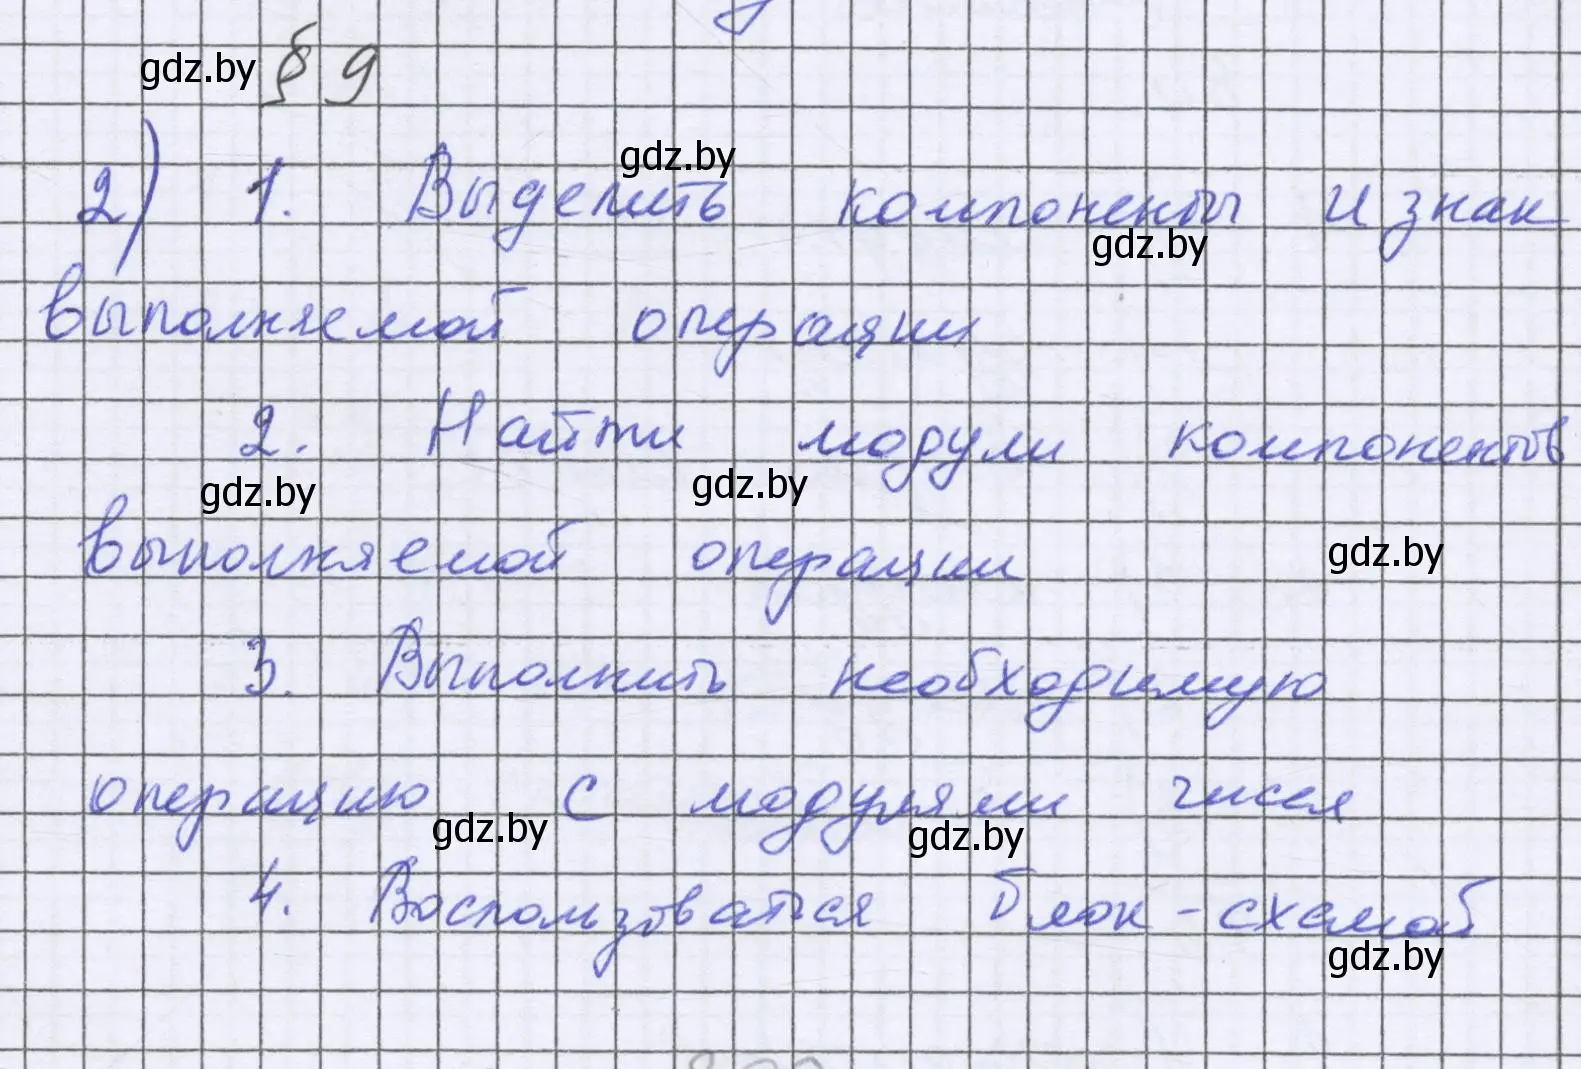 gdz.by § 9
gdz.by
2) 1. Выделить компоненты и знак
gdz.by
выполняемой операции
2. Найти модули компонентов
gdz.by gdz.by
выполняемой операции
gdz.by
3. Выполнить необходимую
операцию с модулями чисел
gdz.by gdz.by
4. Воспользоваться блок-схемой
gdz.by